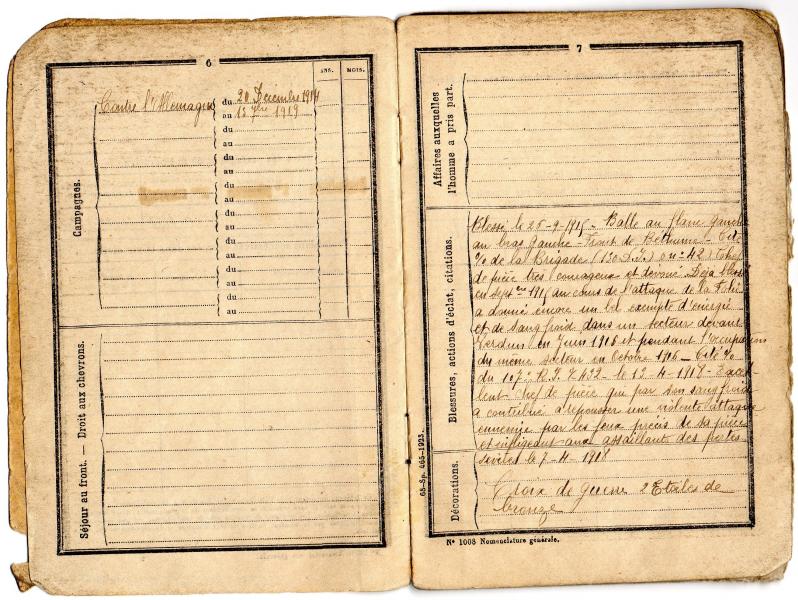 6
ANS. MOIS.
Campagnes.
Contre l'Allemagne du 20 Décembre 1914
au 15 7bre 1919
du
au
du
au
du
au
du
au
du
au
du
au
du
au
Séjour au front. — Droit aux chevrons.
7
Affaires auxquelles
l'homme a pris part.
Blessures, actions d'éclat, citations.
Blessé le 25-9-1915 - Balle au flanc gauche
au bras gauche - Front de Béthune - Cité
% de la Brigade (130 D.I.) o n° 42) Chef
de pièce très courageux et dévoué. Déjà blessé
en Septbre 1915 au cours de l'attaque de la
a donné encore un bel exemple d'énergie
et de sang froid dans un secteur devant
Verdun en Juin 1916 et pendant l'occupation
du même secteur en Octobre 1916 - Cité %
du R.I. n° 432 - le 13-4-1918 - Excel
lent chef de pièce qui par son sang froid
a contribué à repousser une violente attaque
ennemie par les feux précis de sa pièce
et infligeant aux assaillants des pertes
sévères le 7-4-1918
Décorations.
Croix de guerre 2 Etoiles de
bronze
65-Sp. 465-1923.
N° 1008 Nomenclature générale.